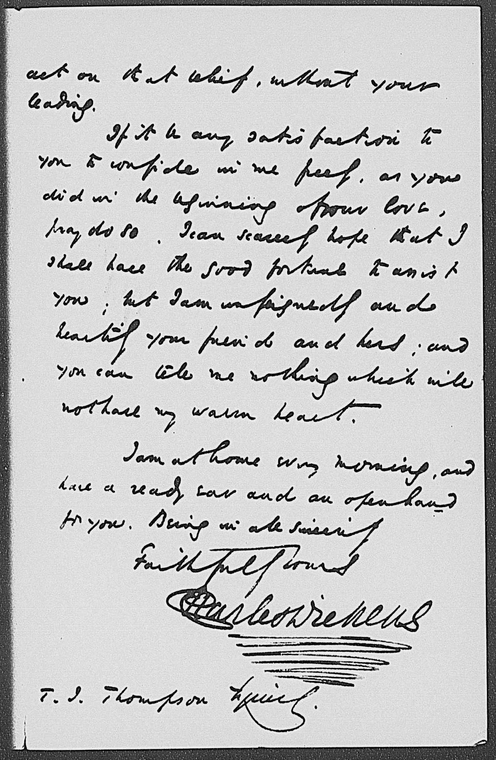 act on that belief, without your
leading.
If it be any satisfaction to
you to confide in me freely, as you
did in the beginning of your love,
pray do so. I can scarcely hope that I
shall have the good fortune to assist
you; but I am unfeignedly and
heartily your friend and hers; and
you can tell me nothing which will
not have my warm heart.
I am at home every morning, and
have a ready ear and an open hand
for you. Being in all sincerity
Faithfully Yours
Charles Dickens
T. J. Thompson Esquire.